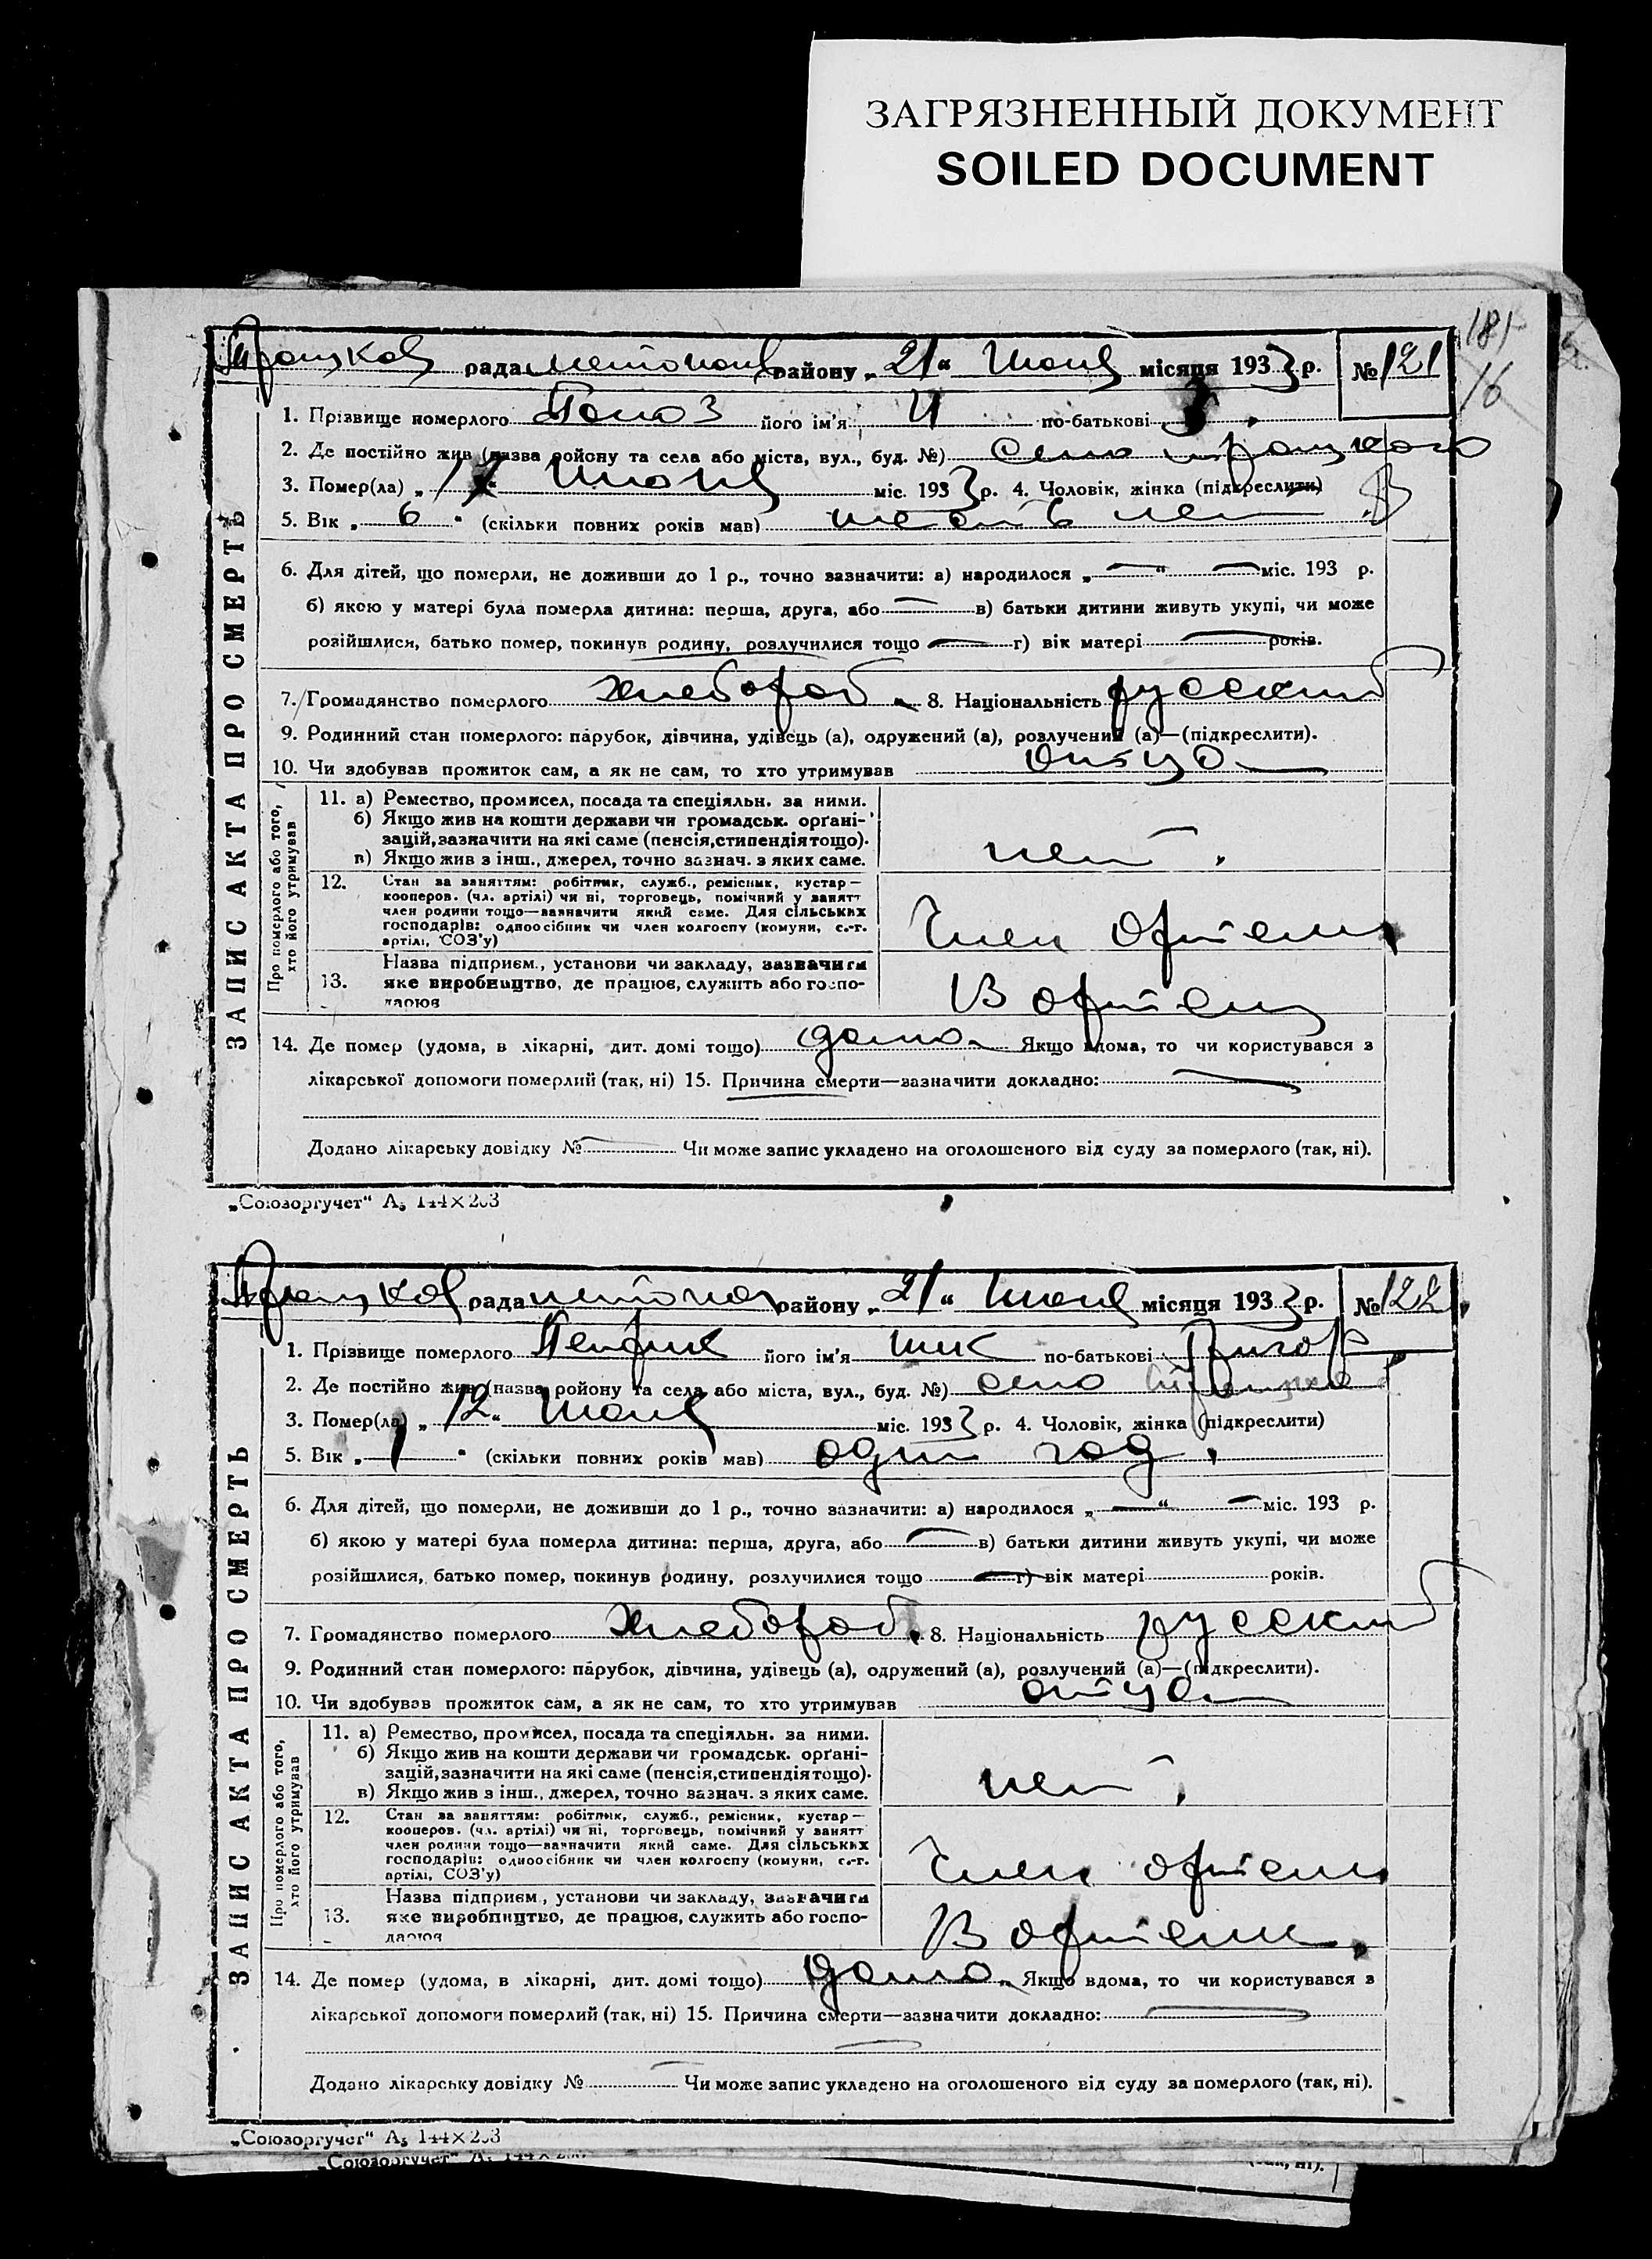 ЗАГРЯЗНЕННЫЙ ДОКУМЕНТ
SOILED DOCUMENT
181
16
рада району „21“ Июня місяця 1933 р. № 121
1. Прізвище померлого його ім'я И по-батькові
2. Де постійно жив (назва ройону та села або міста, вул., буд. №) село
3. Помер(ла) „17“ Июня міс. 1933 р. 4. Чоловік, жінка (підкреслити)
5. Вік „6“ (скільки повних років мав) шесть лет
6. Для дітей, що померли, не доживши до 1 р., точно зазначити: а) народилося „—“ — міс. 193 р.
б) якою у матері була померла дитина: перша, друга, або — в) батьки дитини живуть укупі, чи може
розійшлися, батько помер, покинув родину, розлучилися тощо — г) вік матері — років.
7. Громадянство померлого хлебороб. 8. Національність русский
9. Родинний стан померлого: парубок, дівчина, удівець (а), одружений (а), розлучений (а)—(підкреслити).
10. Чи здобував прожиток сам, а як не сам, то хто утримував
Про померлого або того,
хто його утримував
11. а) Ремество, промисел, посада та спеціяльн. за ними.
б) Якщо жив на кошти держави чи громадськ. орґані-
зацій, зазначити на які саме (пенсія, стипендія тощо).
в) Якщо жив з інш., джерел, точно зазнач. з яких саме.
нет.
12. Стан за заняттям: робітник, служб., ремісник, кустар—
кооперов. (чл. артілі) чи ні, торговець, помічний у занятт
член родини тощо—зазначити який саме. Для сільських
господарів: одноосібник чи член колгоспу (комуни, с.-г.
артілі, СОЗ'у)
Член Артели
13. Назва підприєм., установи чи закладу, зазначити
яке виробництво, де працює, служить або госпо-
дарює
В артели
14. Де помер (удома, в лікарні, дит. домі тощо) дома. Якщо вдома, то чи користувався з
лікарської допомоги померлий (так, ні) 15. Причина смерти—зазначити докладно: —
Додано лікарську довідку № — Чи може запис укладено на оголошеного від суду за померлого (так, ні).
ЗАПИС АКТА ПРО СМЕРТЬ
„Союзоргучет“ А₅ 144×203
рада району „21“ Июня місяця 1933 р. № 122
1. Прізвище померлого його ім'я по-батькові
2. Де постійно жив (назва ройону та села або міста, вул., буд. №) село
3. Помер(ла) „12“ Июня міс. 1933 р. 4. Чоловік, жінка (підкреслити)
5. Вік „1“ (скільки повних років мав) один год.
6. Для дітей, що померли, не доживши до 1 р., точно зазначити: а) народилося „—“ — міс. 193 р.
б) якою у матері була померла дитина: перша, друга, або — в) батьки дитини живуть укупі, чи може
розійшлися, батько помер, покинув родину, розлучилися тощо — г) вік матері років.
7. Громадянство померлого хлебороб. 8. Національність русский
9. Родинний стан померлого: парубок, дівчина, удівець (а), одружений (а), розлучений (а)—(підкреслити).
10. Чи здобував прожиток сам, а як не сам, то хто утримував
Про померлого або того,
хто його утримував
11. а) Ремество, промисел, посада та спеціяльн. за ними.
б) Якщо жив на кошти держави чи громадськ. орґані-
зацій, зазначити на які саме (пенсія, стипендія тощо).
в) Якщо жив з інш., джерел, точно зазнач. з яких саме.
нет.
12. Стан за заняттям: робітник, служб., ремісник, кустар—
кооперов. (чл. артілі) чи ні, торговець, помічний у занятт
член родини тощо—зазначити який саме. Для сільських
господарів: одноосібник чи член колгоспу (комуни, с.-г.
артілі, СОЗ'у)
Член артели
13. Назва підприєм., установи чи закладу, зазначити
яке виробництво, де працює, служить або госпо-
дарює
В артели.
14. Де помер (удома, в лікарні, дит. домі тощо) дома. Якщо вдома, то чи користувався з
лікарської допомоги померлий (так, ні) 15. Причина смерти—зазначити докладно: —
Додано лікарську довідку № — Чи може запис укладено на оголошеного від суду за померлого (так, ні).
ЗАПИС АКТА ПРО СМЕРТЬ
„Союзоргучет“ А₅ 144×203
„Союзоргучет“
(так, ні).